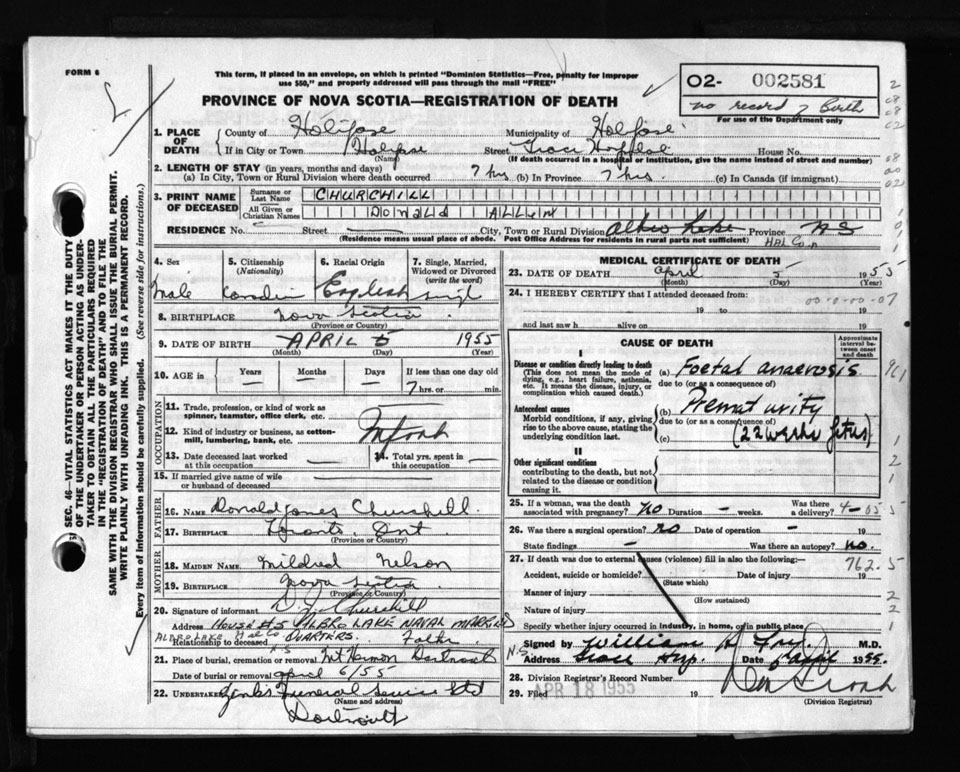 FORM 6
This form, if placed in an envelope, on which is printed "Dominion Statistics—Free, penalty for improper
use $50," and properly addressed will pass through the mail "FREE"
O2- 002581
no record of Birth
For use of the Department only
PROVINCE OF NOVA SCOTIA—REGISTRATION OF DEATH
1. PLACE OF DEATH
County of Halifax Municipality of Halifax
If in City or Town Halifax Street Grace Hospital House No.
(Name) (If death occurred in a hospital or institution, give the name instead of street and number)
2. LENGTH OF STAY (in years, months and days)
(a) In City, Town or Rural Division where death occurred 7 hrs (b) In Province 7 hrs. (c) In Canada (if immigrant)
3. PRINT NAME OF DECEASED
Surname or Last Name CHURCHILL
All Given or Christian Names DONALD ALLEN
RESIDENCE No. Street City, Town or Rural Division Albro Lake Province NS
(Residence means usual place of abode. Post Office Address for residents in rural parts not sufficient) Hal Co.
4. Sex
Male
5. Citizenship
(Nationality)
6. Racial Origin
English
7. Single, Married, Widowed or Divorced
(write the word)
Single
8. BIRTHPLACE Nova Scotia
(Province or Country)
9. DATE OF BIRTH APRIL 5 1955
(Month) (Day) (Year)
10. AGE in Years Months Days If less than one day old
7 hrs. or min.
OCCUPATION
11. Trade, profession, or kind of work as spinner, teamster, office clerk, etc.
12. Kind of industry or business, as cotton-mill, lumbering, bank, etc.
13. Date deceased last worked at this occupation
14. Total yrs. spent in this occupation
15. If married give name of wife or husband of deceased
FATHER
16. NAME Donald James Churchill
17. BIRTHPLACE Toronto Ont
(Province or Country)
MOTHER
18. MAIDEN NAME Mildred Nelson
19. BIRTHPLACE Nova Scotia
(Province or Country)
20. Signature of informant D.J. Churchill
Address HOUSE #5 ALBRO LAKE NAVAL MARRIED
ALBRO LAKE Hal Co QUARTERS.
Relationship to deceased Father
21. Place of burial, cremation or removal Mt Hermon Dartmouth
Date of burial or removal April 6/55
22. UNDERTAKER Zinks Funeral Service Ltd
(Name and address)
Dartmouth
MEDICAL CERTIFICATE OF DEATH
23. DATE OF DEATH April 5 1955
(Month) (Day)
24. I HEREBY CERTIFY that I attended deceased from:
19 to 19
and last saw h alive on 19
CAUSE OF DEATH
Approximate interval between onset and death
I
Disease or condition directly leading to death
(This does not mean the mode of dying, e.g., heart failure, asthenia, etc. It means the disease, injury, or complication which caused death.)
(a) Foetal anaerosis
due to (or as a consequence of)
Antecedent causes
Morbid conditions, if any, giving rise to the above cause, stating the underlying condition last.
(b) Prematurity
due to (or as a consequence of)
(c) (22 weeks fetus)
II
Other significant conditions
contributing to the death, but not related to the disease or condition causing it.
25. If a woman, was the death associated with pregnancy? no Duration – weeks. Was there a delivery?
26. Was there a surgical operation? no Date of operation –
State findings – Was there an autopsy? no.
27. If death was due to external causes (violence) fill in also the following:—
762.5
Accident, suicide or homicide? Date of injury 19
(State which)
Manner of injury
(How sustained)
Nature of injury
Specify whether injury occurred in industry, in home, or in public place
Signed by William M.D.
N.S. Address Grace Hosp. Date 5 April 1955.
28. Division Registrar's Record Number
29. Filed APR 18 1955 19
(Division Registrar)
SEC. 46—VITAL STATISTICS ACT MAKES IT THE DUTY
OF THE UNDERTAKER OR PERSON ACTING AS UNDER-
TAKER TO OBTAIN ALL THE PARTICULARS REQUIRED
IN THE "REGISTRATION OF DEATH" AND TO FILE THE
SAME WITH THE DIVISION REGISTRAR WHO SHALL ISSUE THE BURIAL PERMIT.
WRITE PLAINLY WITH UNFADING INK. THIS IS A PERMANENT RECORD.
Every item of information should be carefully supplied. (See reverse side for instructions.)